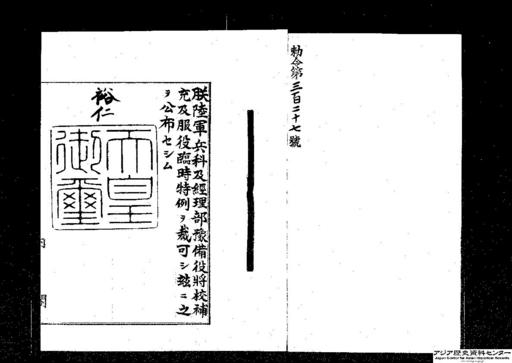 勅令第三百二十七號
朕陸軍兵科及經理部豫備役將校補
充及服役臨時特例ヲ裁可シ玆ニ之
ヲ公布セシム
裕仁
天皇
御璽
内閣
アジア歴史資料センター
Japan Center for Asian Historical Records